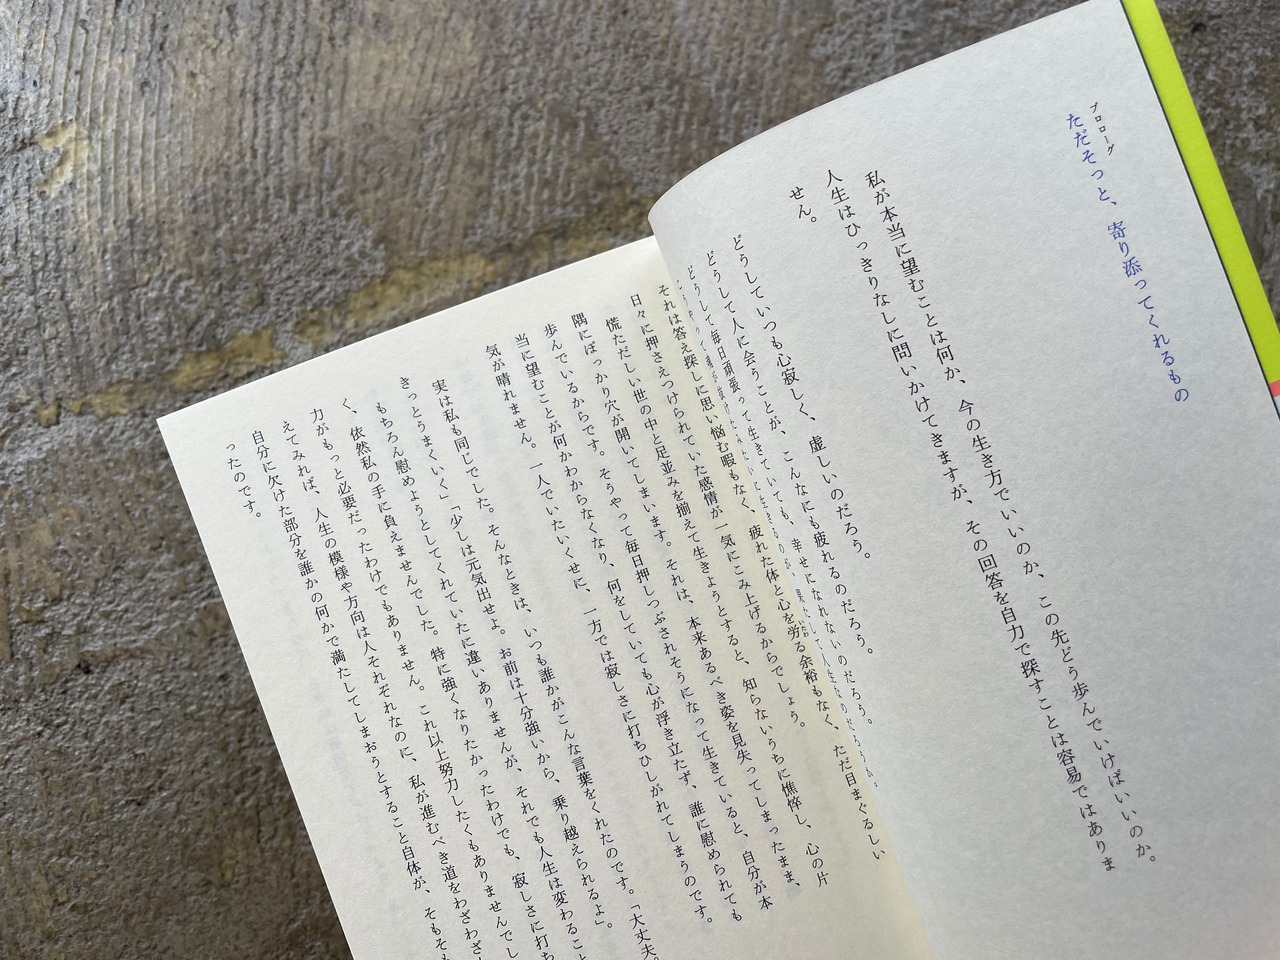 プロローグ
ただそっと、寄り添ってくれるもの
私が本当に望むことは何か、今の生き方でいいのか、この先どう歩んでいけばいいのか。
人生はひっきりなしに問いかけてきますが、その回答を自力で探すことは容易ではありま
せん。
どうしていつも心寂しく、虚しいのだろう。
どうして人に会うことが、こんなにも疲れるのだろう。
どうして毎日頑張って生きていても、幸せになれないのだろう。
それは答え探しに思い悩む暇もなく、疲れた体と心を労る余裕もなく、ただ目まぐるしい
日々に押さえつけられていた感情が一気にこみ上げるからでしょう。
慌ただしい世の中と足並みを揃えて生きようとすると、知らないうちに憔悴し、心の片
隅にぽっかり穴が開いてしまいます。それは、本来あるべき姿を見失ってしまったまま、
歩んでいるからです。そうやって毎日押しつぶされそうになって生きていると、自分が本
当に望むことが何かわからなくなり、何をしていても心が浮き立たず、誰に慰められても
気が晴れません。一人でいたいくせに、一方では寂しさに打ちひしがれてしまうのです。
実は私も同じでした。そんなときは、いつも誰かがこんな言葉をくれたのです。「大丈夫。
きっとうまくいく」「少しは元気出せよ。お前は十分強いから、乗り越えられるよ」。
もちろん慰めようとしてくれていたに違いありませんが、それでも人生は変わること
く、依然私の手に負えませんでした。特に強くなりたかったわけでも、寂しさに打ち
力がもっと必要だったわけでもありません。これ以上努力したくもありませんでし
えてみれば、人生の模様や方向は人それぞれなのに、私が進むべき道をわざわざ
自分に欠けた部分を誰かの何かで満たしてしまおうとすること自体が、そもそも
ったのです。